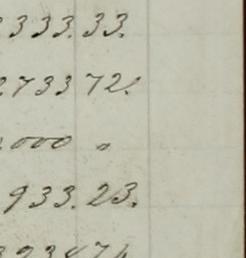 333.33.
2733 72.
000 "
933.23.